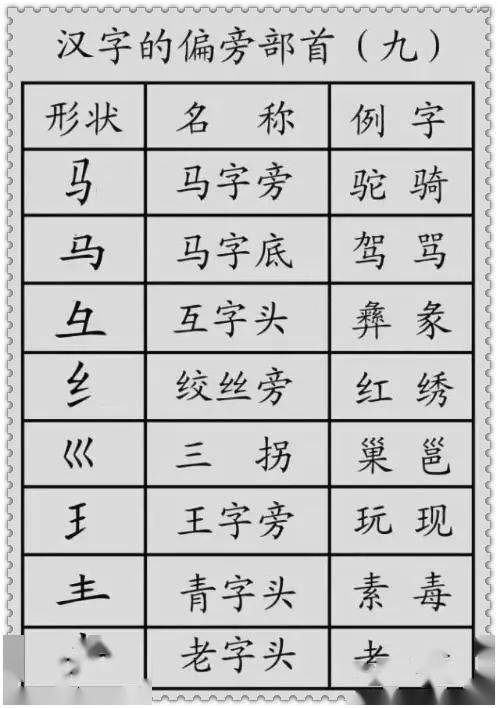 汉字的偏旁部首（九）
形状 名称 例字
马 马字旁 驼 骑
马 马字底 驾 骂
彑 互字头 彝 彖
纟 绞丝旁 红 绣
巛 三拐 巢 邕
王 王字旁 玩 现
龶 青字头 素 毒
老字头 老